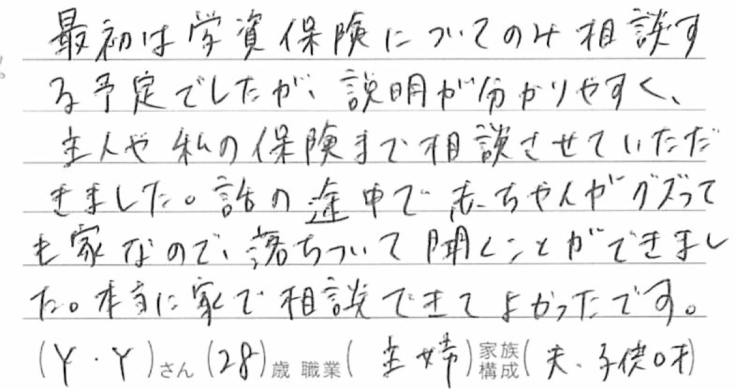 最初は学資保険についてのみ相談す
る予定でしたが、説明が分かりやすく、
主人や私の保険まで相談させていただ
きました。話の途中で赤ちゃんがグズって
も家なので、落ちついて聞くことができまし
た。本当に家で相談できてよかったです。
(Y・Y)さん (28)歳 職業(主婦)家族構成(夫、子供0才)